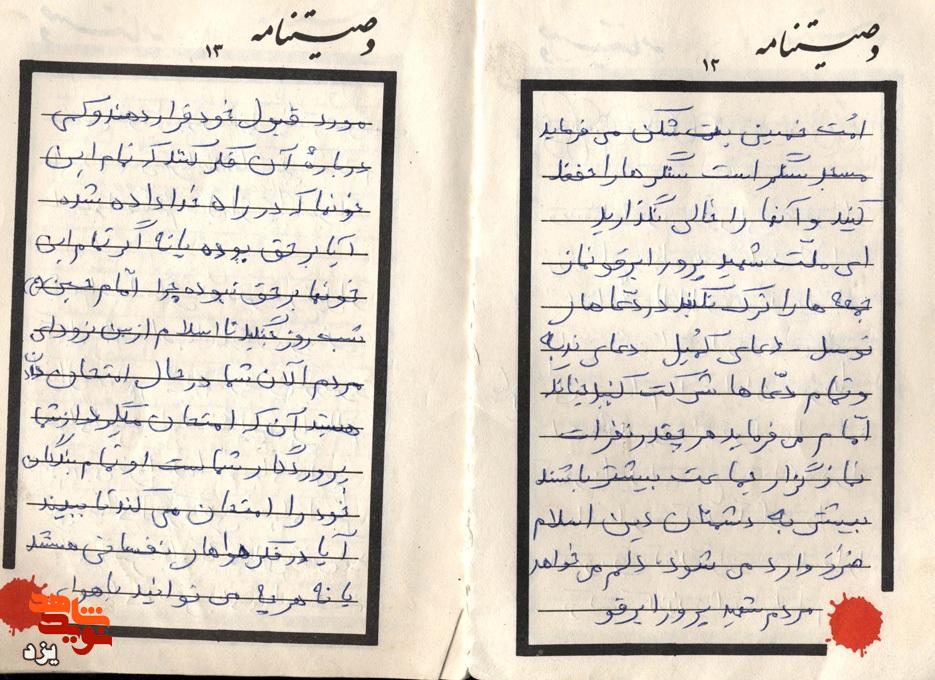 وصیتنامه
۱۲
امت خمینی بت شکن می فرماید
مسجد سنگر است سنگرها را حفظ
کنید و آنها را خالی نگذارید
ای ملت شهید پرور ابرقو نماز
جمعه ها را ترک نکنید در دعاهای
توسل دعای کمیل دعای ندبه
و تمام دعا ها شرکت کنید
امام می فرماید هر چقدر نفرات
نمازگزار جماعت بیشتر باشند
بیشتر به دشمنان دین اسلام
ضرر وارد می شود دلم می خواهد
مردم شهید پرور ابرقو
وصیتنامه
۱۳
مورد قبول خود قرار دهند و کمی
درباره آن فکر کنند که تمام این
خونها که در راه خدا داده شده
آیا بر حق بوده یا نه اگر تمام این
خونها بر حق نبوده چرا امام حسین
شب روز جنگید تا اسلام از بین نرود ای
مردم الان شما در حال امتحان دادن
هستید آن که امتحان میگیرد از شما
پروردگار شماست او تمام بندگان
خود را امتحان می کند تا ببیند
آیا در فکر هواهای نفسانی هستند
یا نه هر چه می توانید با هوای
شاهد
نوید
یزد